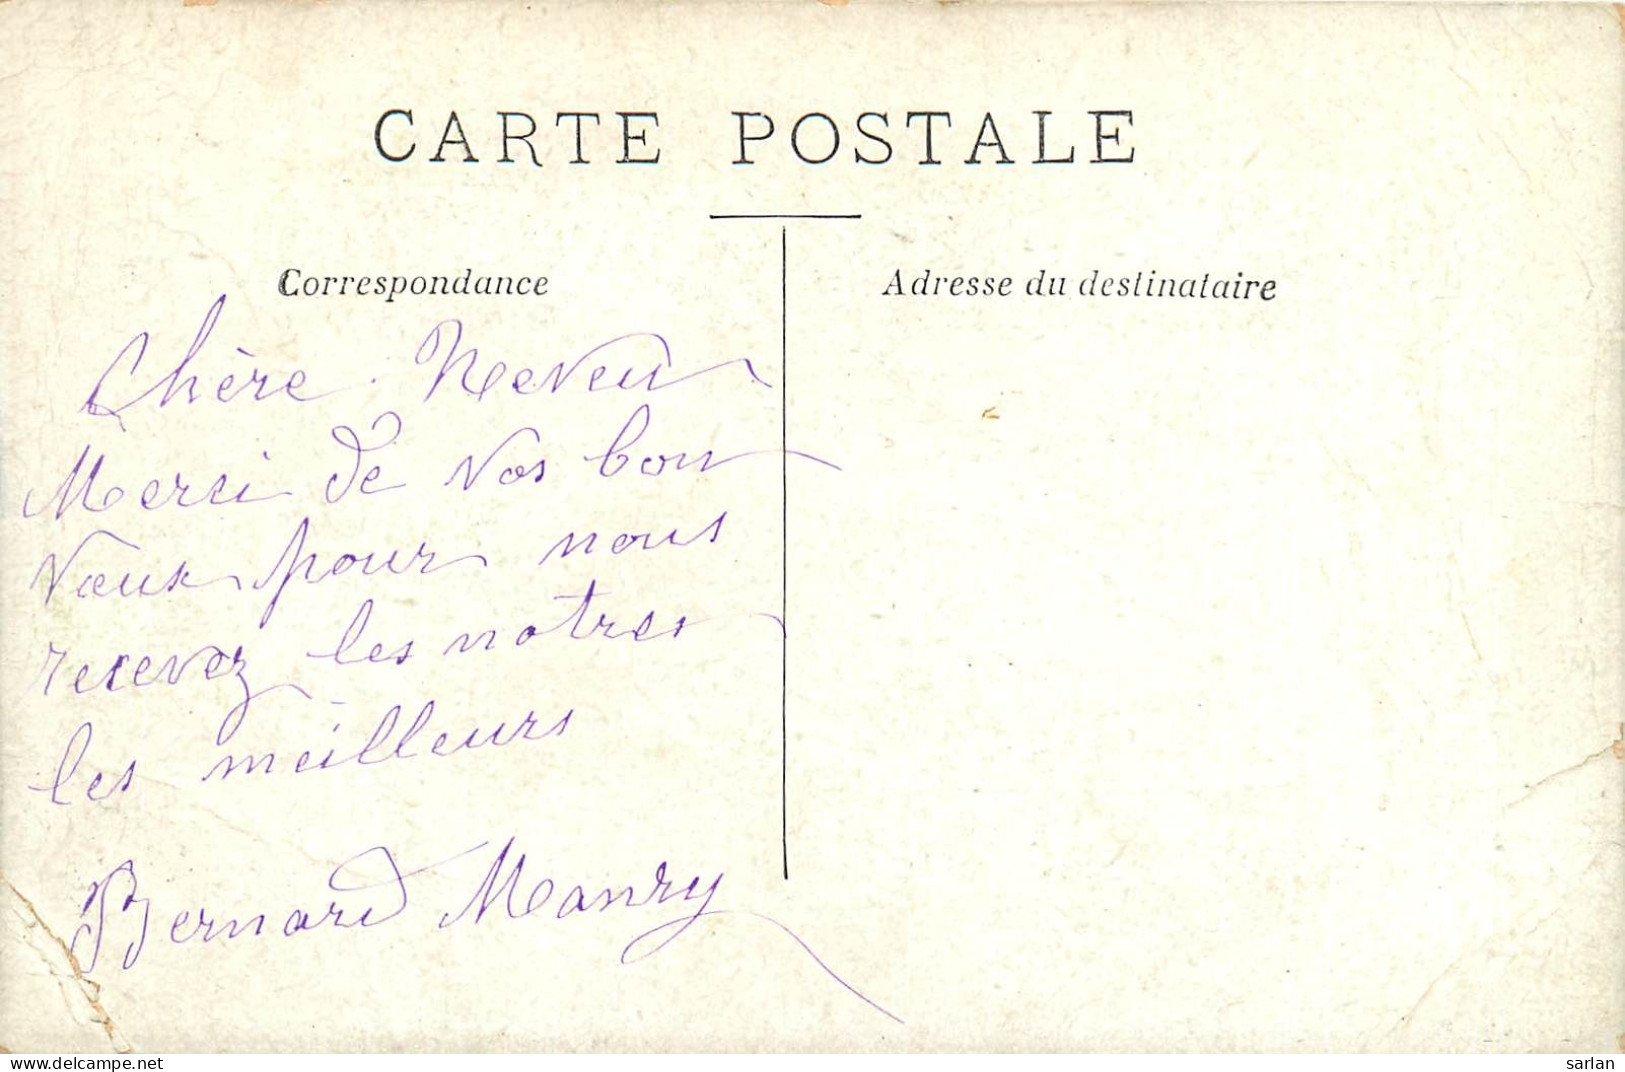 CARTE POSTALE
Correspondance
Adresse du destinataire
Chère Neveu
Merci de vos bon
vœux pour nous
recevez les notres
les meilleurs
Bernard Manry
www.delcampe.net
sarlan